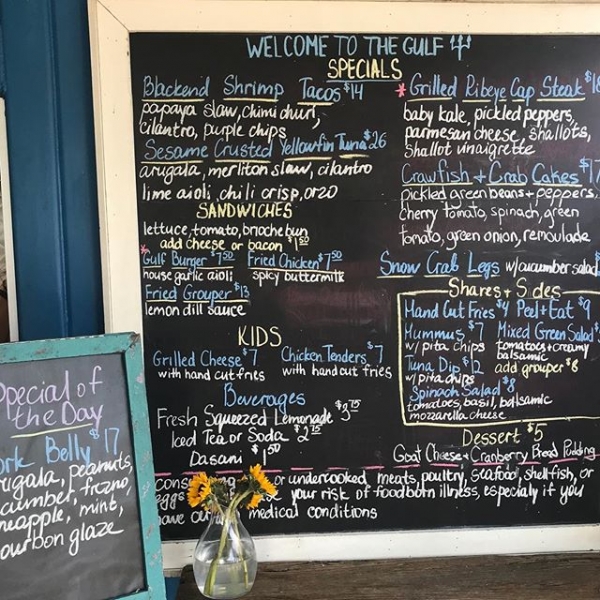 WELCOME TO THE GULF
SPECIALS
Blackend Shrimp Tacos $14
papaya slaw, chimi churri,
cilantro, purple chips
Sesame Crusted Yellowfin Tuna $26
arugala, merliton slaw, cilantro
lime aioli, chili crisp, orzo
SANDWICHES
lettuce, tomato, brioche bun
add cheese or bacon $1.50
* Gulf Burger $7.50
house garlic aioli
Fried Chicken $7.50
spicy buttermilk
Fried Grouper $13
lemon dill sauce
KIDS
Grilled Cheese $7
with hand cut fries
Chicken Tenders $7
with hand cut fries
Beverages
Fresh Squeezed Lemonade $3.75
Iced Tea or Soda $2.75
Dasani $1.50
* Grilled Ribeye Cap Steak
baby kale, pickled peppers,
parmesan cheese, shallots,
shallot vinaigrette
Crawfish + Crab Cakes $17
pickled green beans + peppers,
cherry tomato, spinach, green
tomato, green onion, remoulade
Snow Crab Legs w/cucumber salad
Shares + Sides
Hand Cut Fries $4
Peel + Eat $9
Hummus $7
w/ pita chips
Mixed Green Salad
tomatoes + creamy
balsamic
add grouper $8
Tuna Dip $12
w/ pita chips
Spinach Salad $8
tomatoes, basil, balsamic
mozzarella cheese
Dessert $5
Goat Cheese + Cranberry Bread Pudding
or undercooked meats, poultry, seafood, shellfish, or
eggs your risk of foodborn illness, especially if you
have medical conditions
Special of
the Day
Pork Belly $17
arugala, peanuts,
cucumber, frezno,
pineapple, mint,
bourbon glaze